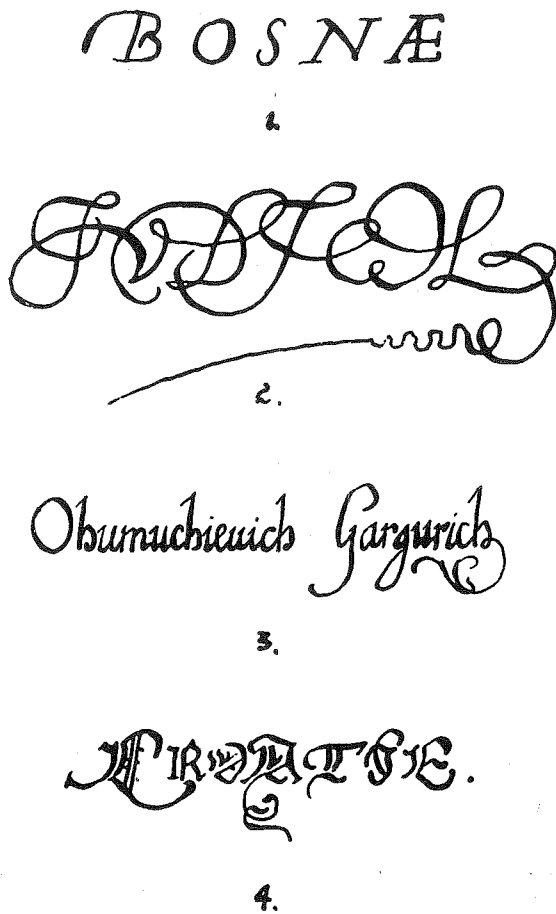 BOSNÆ
1
2.
Ohumuchieuich Gargurich
3.
CROATIE.
4.